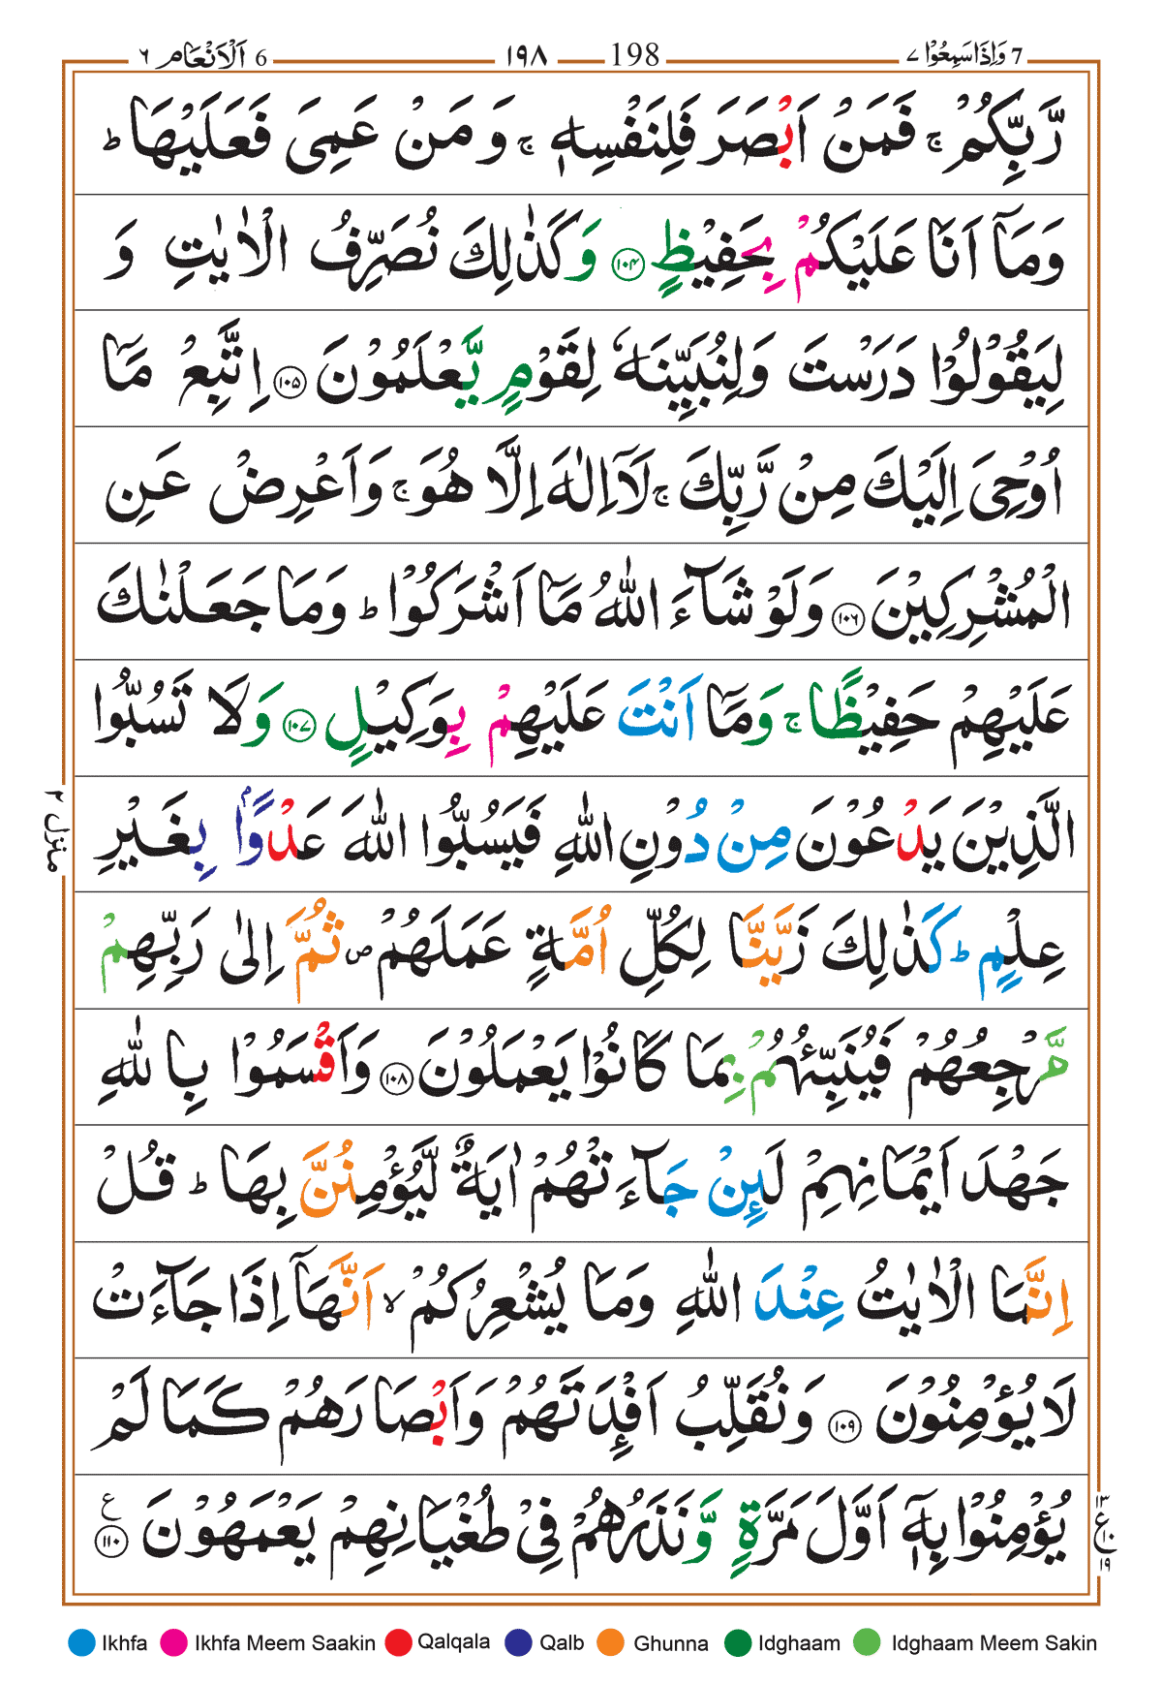 ٦ اَلْاَنْعَام 6 ١٩٨ 198 وَاِذَاسَمِعُوْا ٧ 7
رَّبِّكُمْ ۚ فَمَنْ اَبْصَرَ فَلِنَفْسِهٖ ۚ وَ مَنْ عَمِیَ فَعَلَیْهَا ؕ
وَمَاۤ اَنَا عَلَیْكُمْ بِحَفِیْظٍ ۝١٠٤ وَكَذٰلِكَ نُصَرِّفُ الْاٰیٰتِ وَ
لِیَقُوْلُوْا دَرَسْتَ وَلِنُبَیِّنَهٗ لِقَوْمٍ یَّعْلَمُوْنَ ۝١٠٥ اِتَّبِعْ مَاۤ
اُوْحِیَ اِلَیْكَ مِنْ رَّبِّكَ ۚ لَاۤ اِلٰهَ اِلَّا هُوَ ۚ وَاَعْرِضْ عَنِ
الْمُشْرِكِیْنَ ۝١٠٦ وَلَوْ شَآءَ اللّٰهُ مَاۤ اَشْرَكُوْا ؕ وَمَا جَعَلْنٰكَ
عَلَیْهِمْ حَفِیْظًا ۚ وَمَاۤ اَنْتَ عَلَیْهِمْ بِوَكِیْلٍ ۝١٠٧ وَلَا تَسُبُّوا
الَّذِیْنَ یَدْعُوْنَ مِنْ دُوْنِ اللّٰهِ فَیَسُبُّوا اللّٰهَ عَدْوًۢا بِغَیْرِ
عِلْمٍ ؕ كَذٰلِكَ زَیَّنَّا لِكُلِّ اُمَّةٍ عَمَلَهُمْ ۪ ثُمَّ اِلٰی رَبِّهِمْ
مَّرْجِعُهُمْ فَیُنَبِّئُهُمْ بِمَا كَانُوْا یَعْمَلُوْنَ ۝١٠٨ وَاَقْسَمُوْا بِاللّٰهِ
جَهْدَ اَیْمَانِهِمْ لَىِٕنْ جَآءَتْهُمْ اٰیَةٌ لَّیُؤْمِنُنَّ بِهَا ؕ قُلْ
اِنَّمَا الْاٰیٰتُ عِنْدَ اللّٰهِ وَمَا یُشْعِرُكُمْ ۙ اَنَّهَاۤ اِذَا جَآءَتْ
لَا یُؤْمِنُوْنَ ۝١٠٩ وَنُقَلِّبُ اَفْـِٕدَتَهُمْ وَاَبْصَارَهُمْ كَمَا لَمْ
یُؤْمِنُوْا بِهٖۤ اَوَّلَ مَرَّةٍ وَّنَذَرُهُمْ فِیْ طُغْیَانِهِمْ یَعْمَهُوْنَ ۝١١٠ ع
منزل ٢
١٣ ع ١٠ ١٩
Ikhfa Ikhfa Meem Saakin Qalqala Qalb Ghunna Idghaam Idghaam Meem Sakin